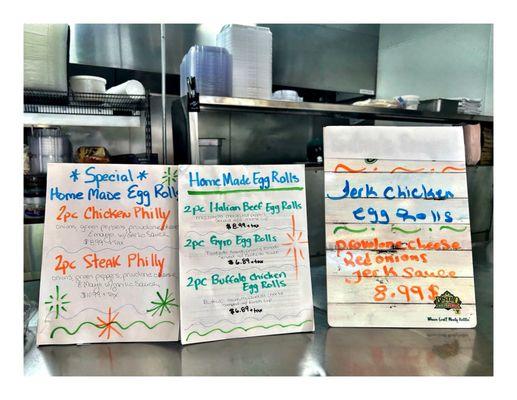 * Special *
Home Made Egg Rolls
2pc Chicken Philly
onions, green peppers, provolone cheese
w/ Garlic Sauce
$8.99 + tax
2pc Steak Philly
onions, green peppers, provolone cheese
& Mayo
$10.99 + tax
Home Made Egg Rolls
2pc Italian Beef Egg Rolls
$8.99 + tax
2pc Gyro Egg Rolls
$6.89 + tax
2pc Buffalo Chicken
Egg Rolls
$6.89 + tax
Jerk Chicken
egg Rolls
provolone cheese
Red onions
Jerk Sauce
8.99$